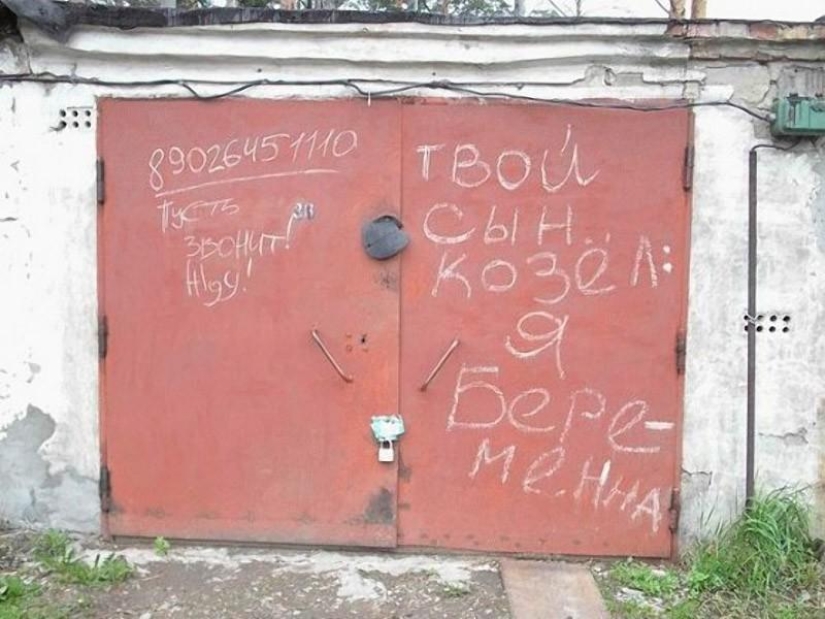 89026451110
Пусть
звонит!
Жду!
ТВОЙ
СЫН
КОЗЁЛ:
Я
Бере-
менна